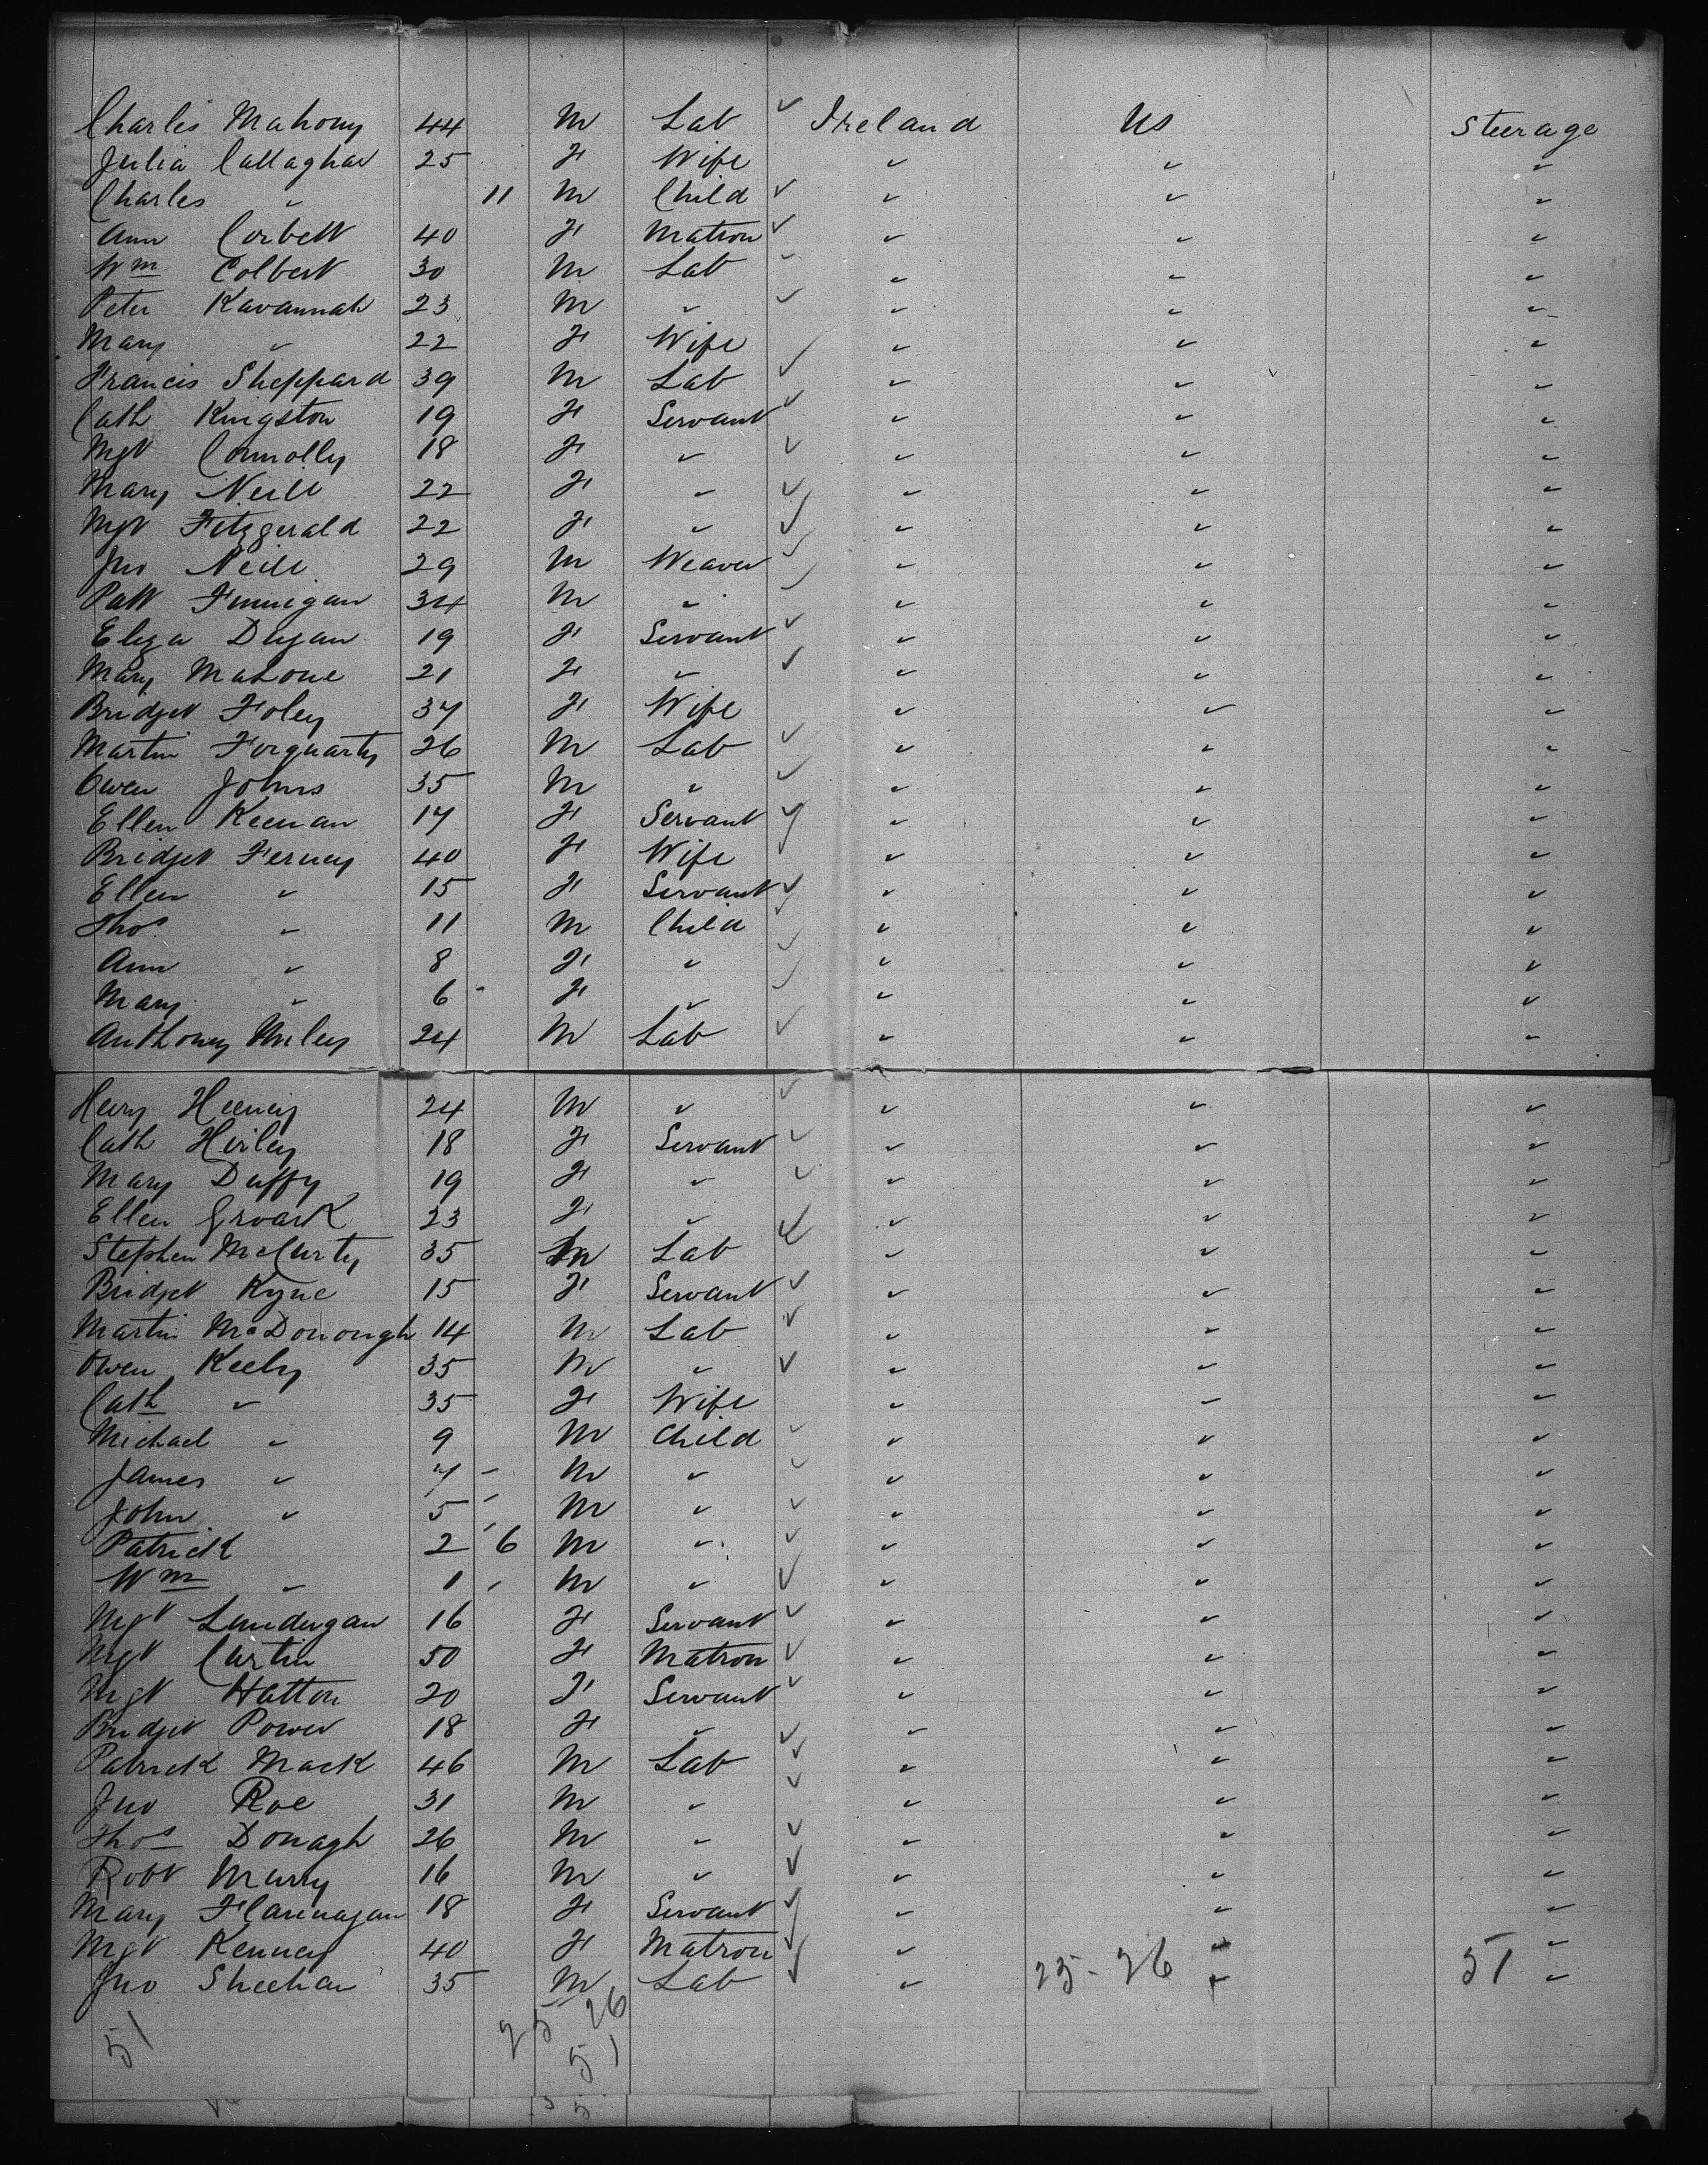 Charles Mahony 44 M Lab ✓ Ireland US Steerage
Julia Callaghan 25 F Wife " " "
Charles " 11 M Child ✓ " " "
Ann Corbett 40 F Matron ✓ " " "
Wm Colbert 30 M Lab " " "
Peter Kavannah 23 M " ✓ " " "
Mary " 22 F Wife " " "
Francis Sheppard 39 M Lab ✓ " " "
Cath Kingston 19 F Servant ✓ " " "
Mgt Connolly 18 F " ✓ " " "
Mary Neill 22 F " ✓ " " "
Mgt Fitzgerald 22 F " ✓ " " "
Jno Neill 29 M Weaver ✓ " " "
Patt Finnigan 34 M " " " "
Eliza Dugan 19 F Servant ✓ " " "
Mary Malone 21 F " ✓ " " "
Bridget Foley 37 F Wife " " "
Martin 26 M Lab ✓ " " "
Owen Johns 35 M " ✓ " " "
Ellen Keenan 17 F Servant ✓ " " "
Bridget Ferney 40 F Wife " " "
Ellen " 15 F Servant ✓ " " "
Thos " 11 M Child ✓ " " "
Ann " 8 F " ✓ " " "
Mary " 6 F " ✓ " " "
Anthony 24 M Lab ✓ " " "
Heeney 24 M " ✓ " " "
Cath 18 F Servant ✓ " " "
Mary Duffy 19 F " ✓ " " "
Ellen Groark 23 F " ✓ " " "
Stephen McCurty 35 M Lab ✓ " " "
Bridget Kyne 15 F Servant ✓ " " "
Martin McDonough 14 M Lab ✓ " " "
Owen Keely 35 M " ✓ " " "
Cath " 35 F Wife " " "
Michael " 9 M Child ✓ " " "
James " 7 M " ✓ " " "
John " 5 M " ✓ " " "
Patrick 2 6 M " ✓ " " "
Wm " 1 M " ✓ " " "
Mgt 16 F Servant ✓ " " "
Mgt Curtin 50 F Matron ✓ " " "
Mgt Hatton 20 F Servant ✓ " " "
Bridget Power 18 F " ✓ " " "
Patrick Mack 46 M Lab ✓ " " "
Jno Roe 31 M " ✓ " " "
Thos Donagh 26 M " ✓ " " "
Robt Murry 16 M " ✓ " " "
Mary Flannagan 18 F Servant ✓ " " "
Mgt Kenney 40 F Matron ✓ " " "
Jno Sheehan 35 M Lab ✓ " 25-26 " 51 "
51 25 26
51